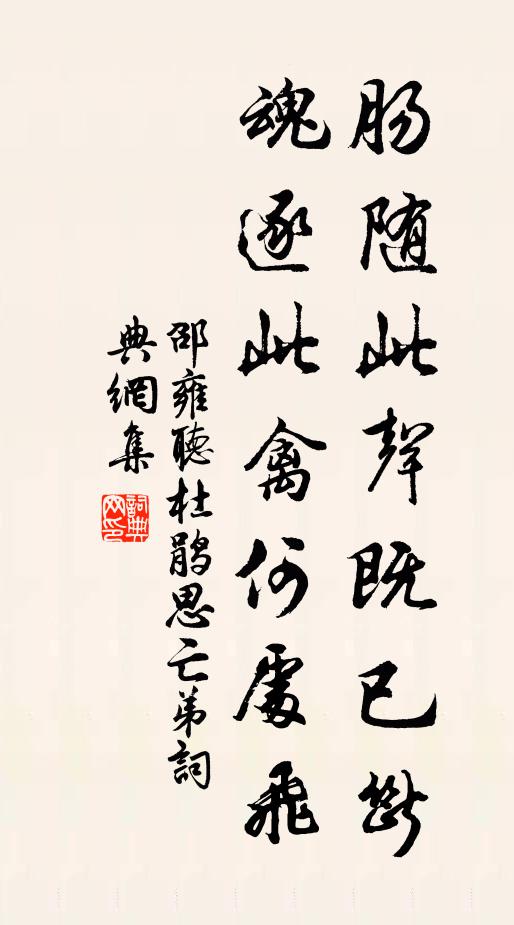 肠随此声既已断
魂逐此禽何處飛
邵雍聽杜鹃思亡弟詞
典網集
詞典
网印